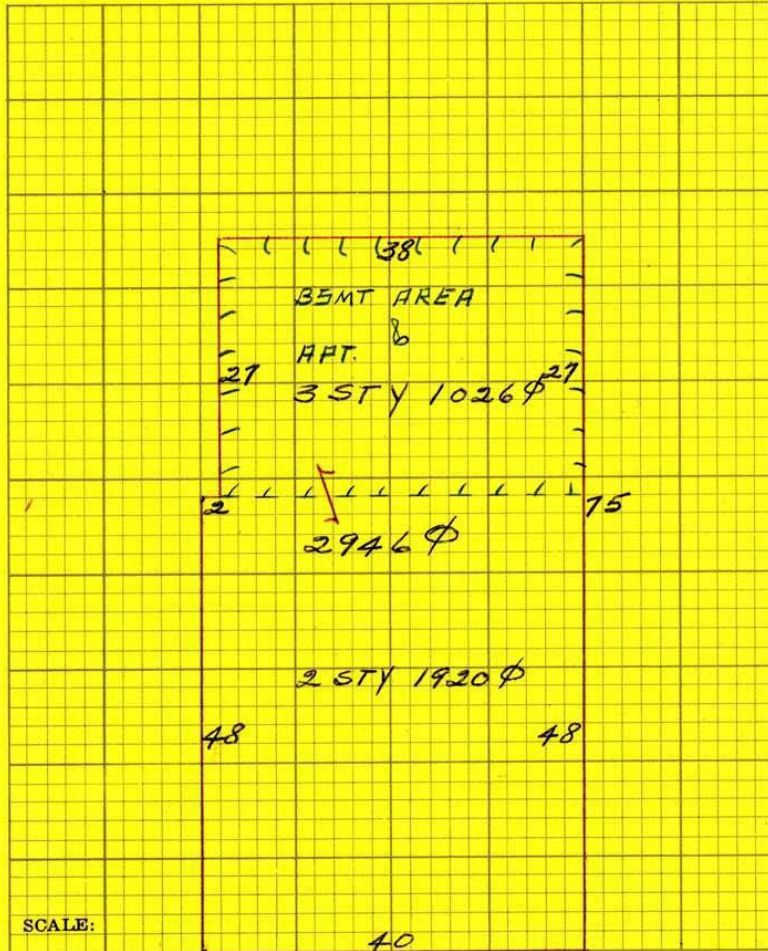 38
BSMT AREA
&
APT.
27 27
3 STY 1026 ϕ
2 75
2946 ϕ
2 STY 1920 ϕ
48 48
SCALE:
40